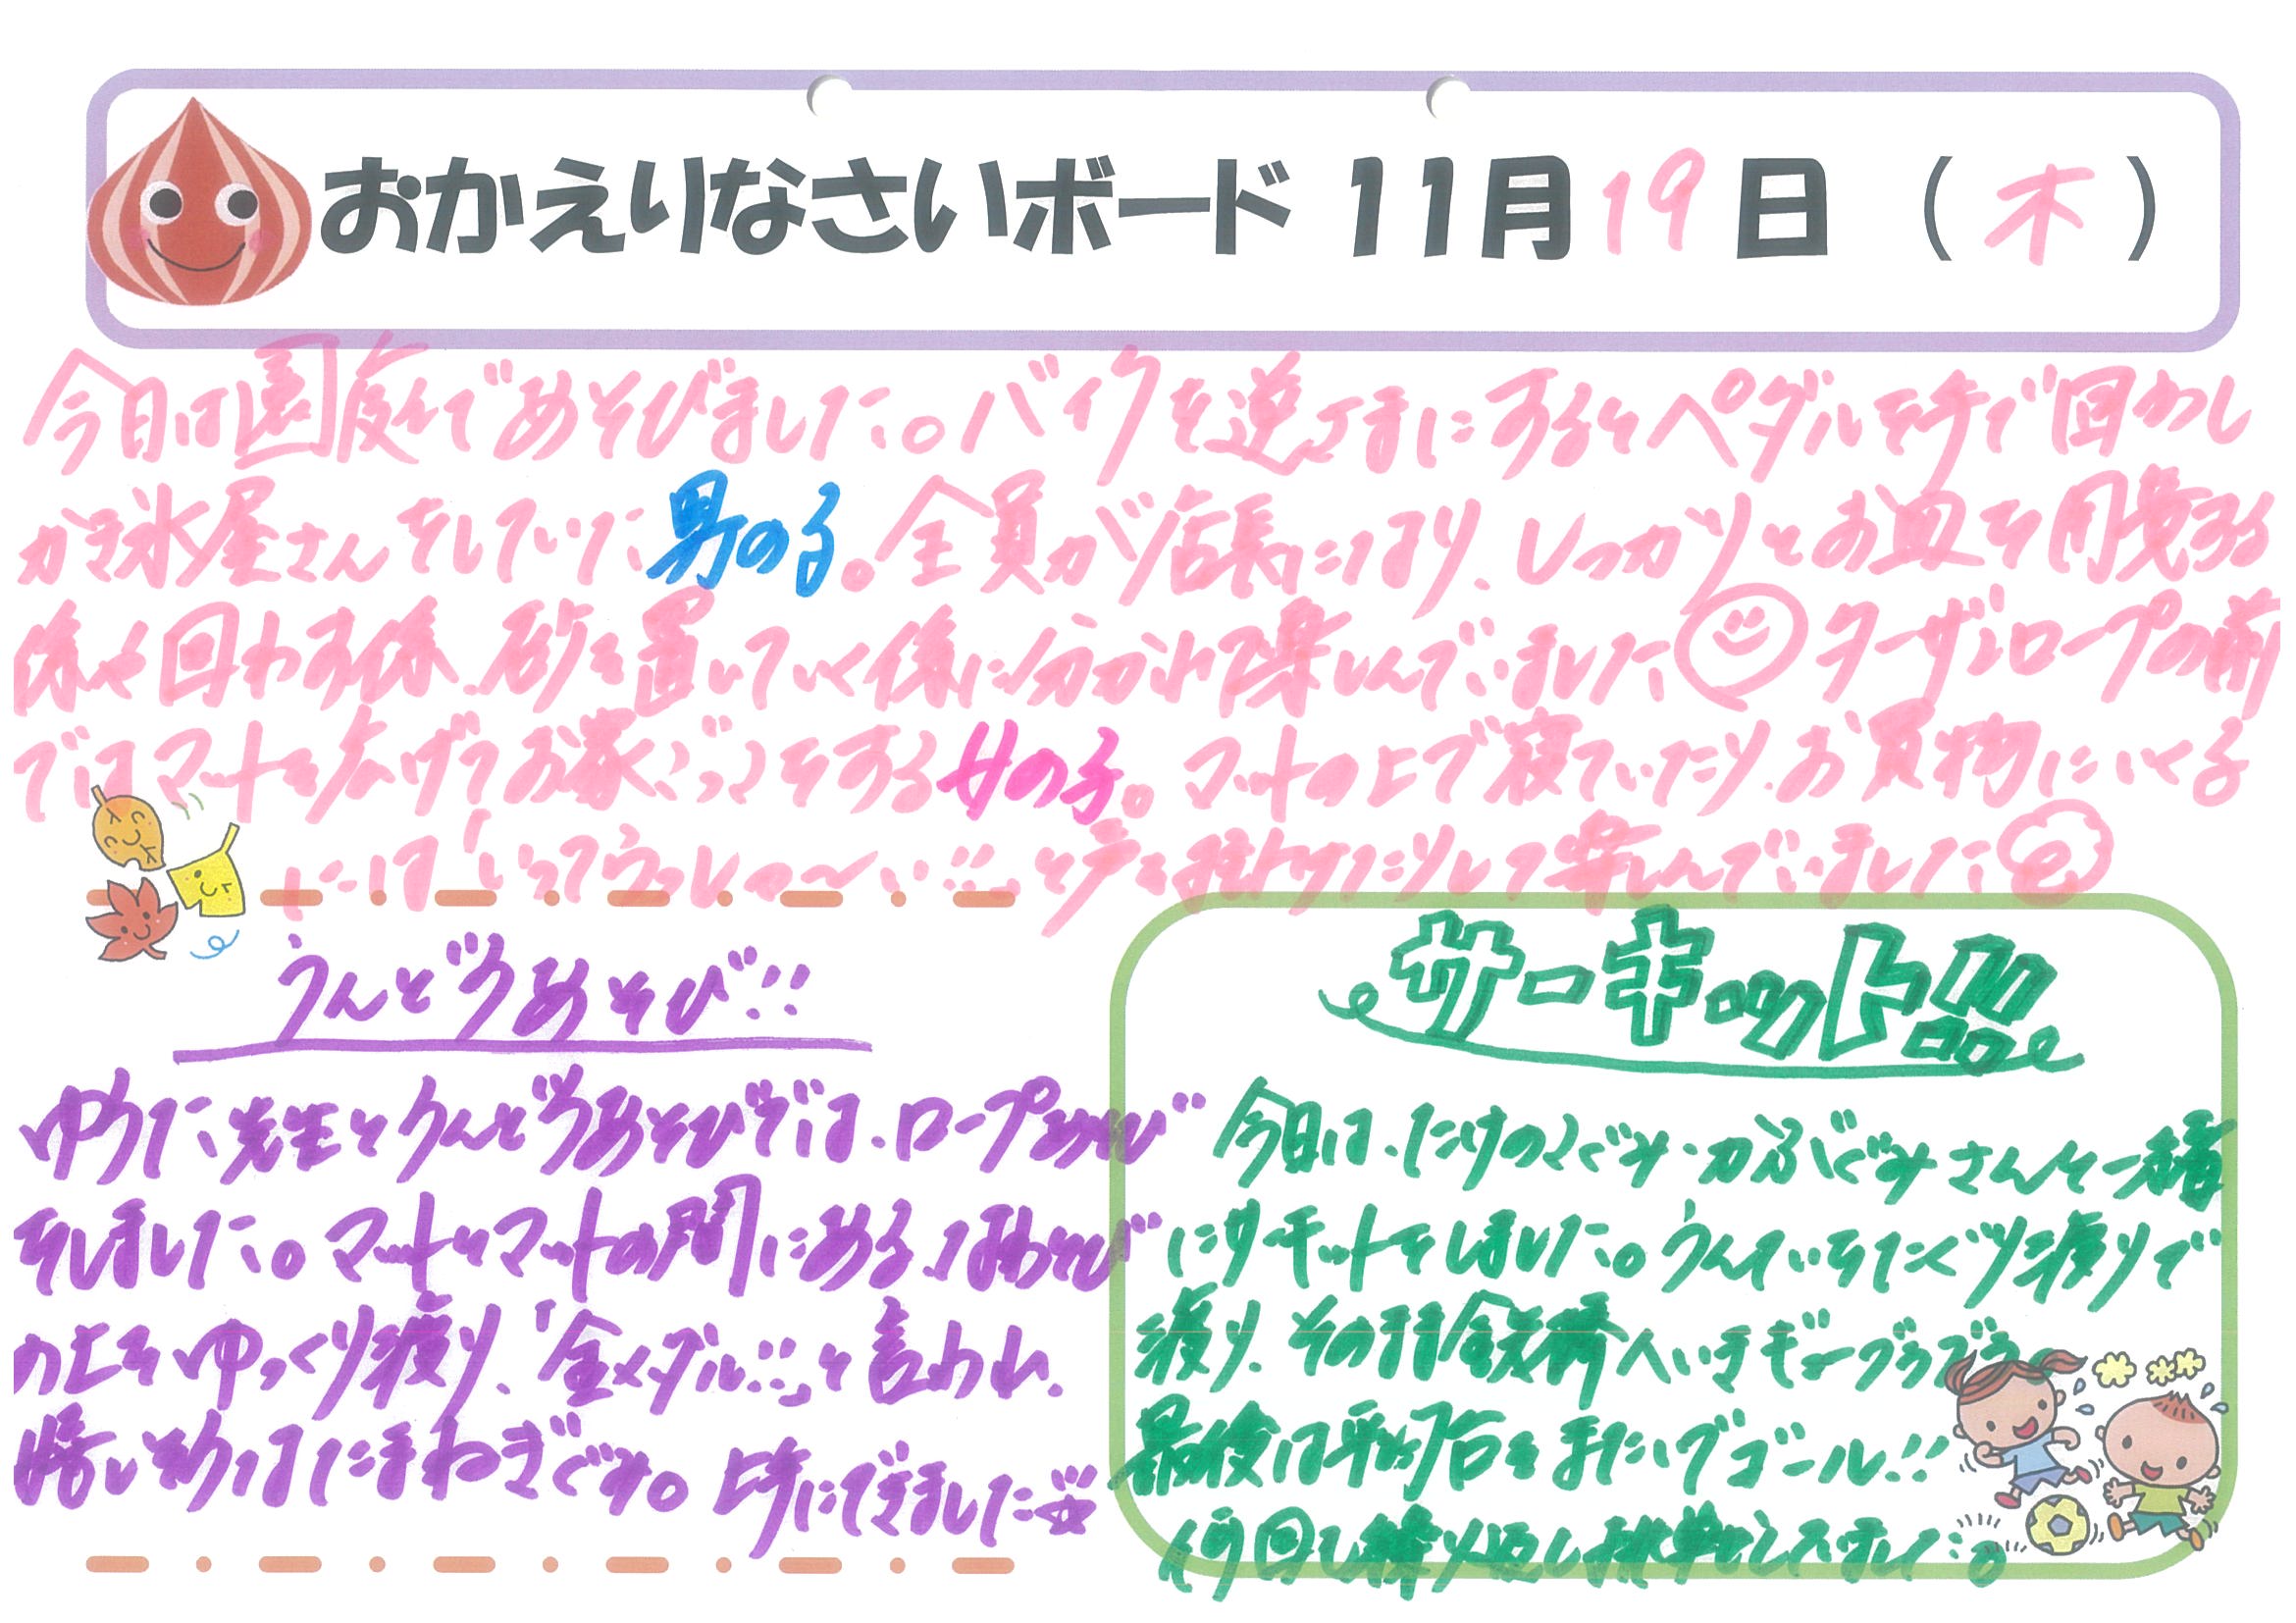 おかえりなさいボード 11月19日（木）
今日は園庭であそびました。バイクを逆さまにするとペダルを手で回わし
かき氷屋さんをしていた男の子。全員が店長になり、しっかりとお皿を用意する
係や回わす係、砂を置いていく係に分かれて楽しんでいました ターザンロープの前
ではマットを広げてお家ごっこをする女の子。マットの上で寝ていたり、お買物にいく子
には「いってらっしゃ〜い!!」と声を掛けたりして楽しんでいました
うんどうあそび!!
ゆうた先生とうんどうあそびでは、ロープあそび
をしました。マットとマットの間にある、なわとび
の上をゆっくり渡り、「金メダル!!」と言われ、
嬉しそうなたまねぎぐみ。上手にできました☆
サーキット
今日は、たけのこぐみ・かぶぐみさんと一緒
にサーキットをしました。うんていをたぐり渡りで
渡り、そのまま鉄棒へいきギューブラブラ。
最後は平均台をまたいでゴール!!
何回も繰り返し挑戦していました。